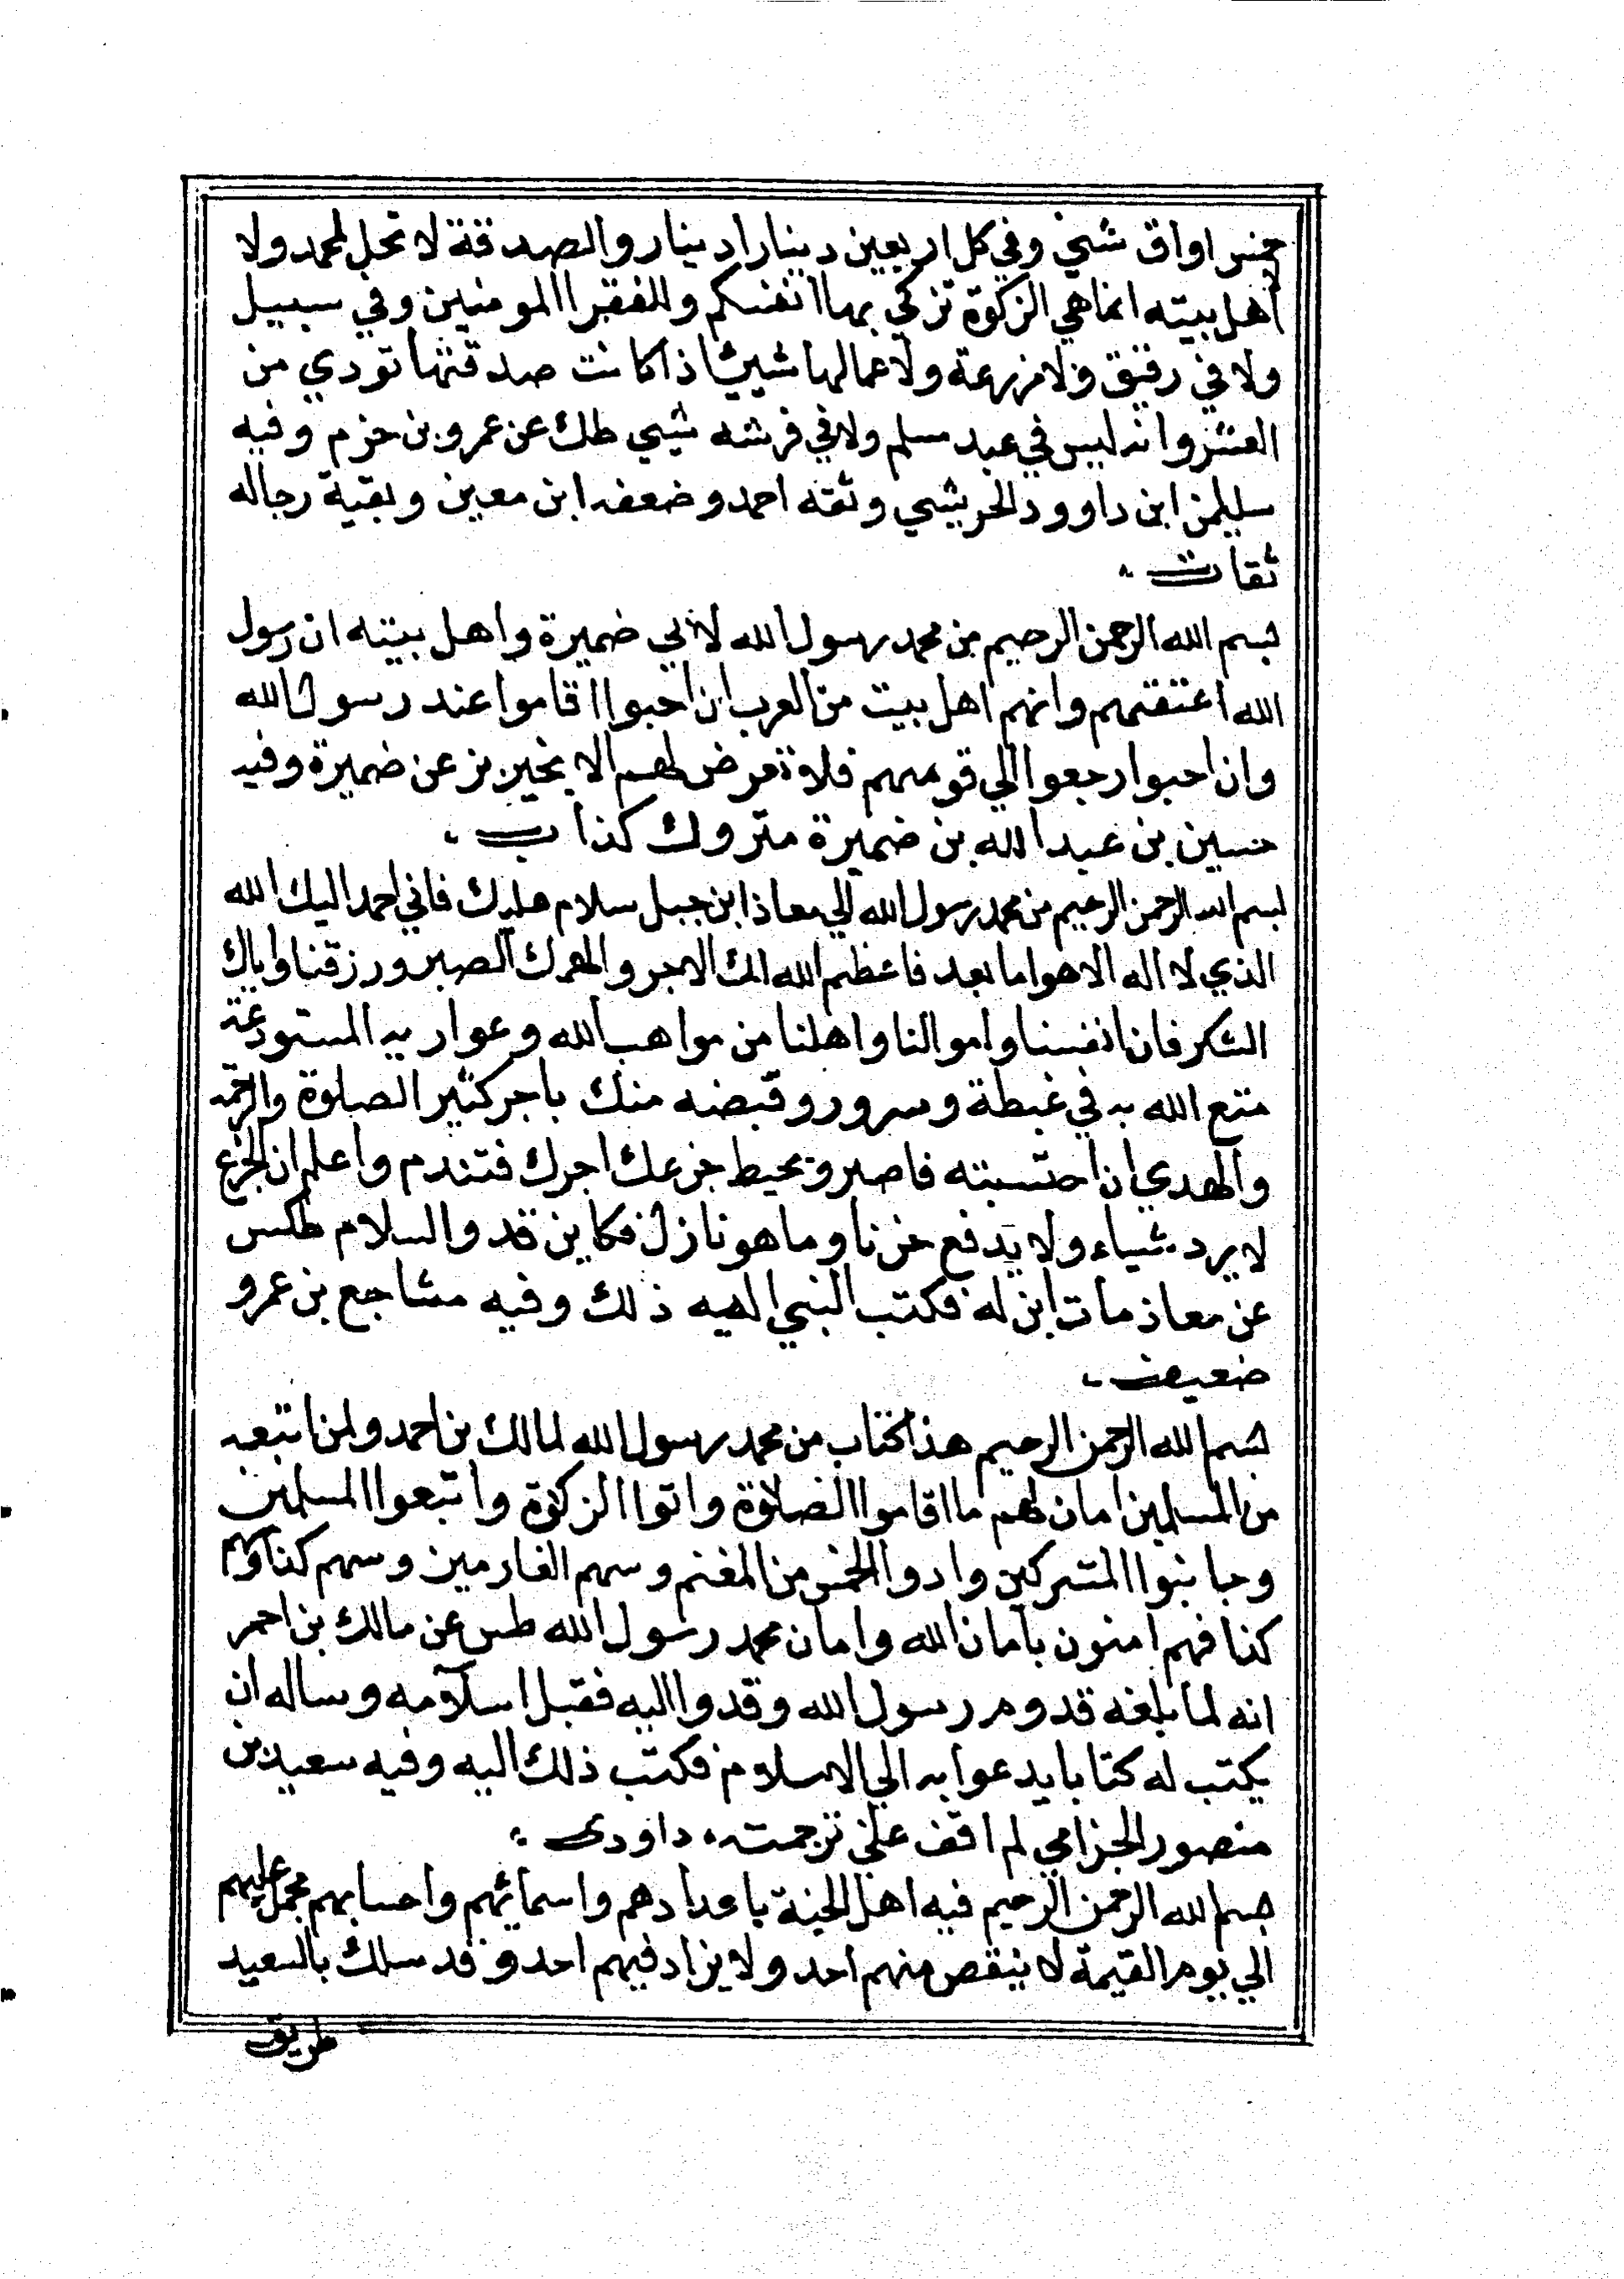 خمس اواق شيئ وفي كل اربعين دينارا دينار والصدقة لا تحل لمحمد ولا
لاهل بيته انما هي الزكوة تزكي بها انفسكم وللفقرا المومنين وفي سبيل
ولا في رقيق ولا مزرعة ولا عمالها شيئ اذا كانت صدقتها تودي من
العشر وانه ليس في عبد مسلم ولا في فرسه شيي طك عن عمرو بن حزم وفيه
سليمن ابن داوود الحريشي وثقه احمد وضعفه ابن معين وبقية رجاله
ثقات
بسم الله الرحمن الرحيم من محمد رسول الله لابي ضميرة واهل بيته ان رسول
الله اعتقتهم وانهم اهل بيت من العرب ان احبوا اقاموا عند رسول الله
وان احبوا رجعوا الي قومهم فلا تعرض لهم الا بخير بز عن ضميرة وفيه
حسين بن عبد الله بن ضميرة متروك كذاب
بسم الله الرحمن الرحيم من محمد رسول الله الي معاذ ابن جبل سلام عليك فاني احمد اليك الله
الذي لا اله الا هو اما بعد فاعظم الله لك الاجر والهمك الصبر ورزقنا واياك
الشكر فان انفسنا واموالنا واهلنا من مواهب الله وعواريه المستودعة
متع الله به في غبطة وسرور وقبضه منك باجر كثير الصلوة والرحمة
والهدي ان احتسبته فاصبر و يحيط جزعك اجرك فتندم واعلم ان الجزع
لا يرد شياء ولا يدفع حزنا وما هو نازل فكاين قد والسلام طكس
عن معاذ مات ابن له فكتب النبي اليه ذلك وفيه مشاجع بن عمرو
ضعيف
بسم الله الرحمن الرحيم هذا كتاب من محمد رسول الله لمالك بن احمد ولمن اتبعه
من المسلمين امان لهم ما اقاموا الصلاوة واتوا الزكوة واتبعوا المسلمين
وجانبوا المشركين وادوا الخمس من المغنم وسهم الغارمين وسهم كذا وسهم
كذا فهم امنون بامان الله وامان محمد رسول الله طس عن مالك بن احمر
انه لما بلغه قدوم رسول الله وقدوا اليه فقبل اسلامه وساله ان
يكتب له كتابا يدعوا به الي الاسلام فكتب ذلك اليه وفيه سعيد بن
منصور الجزامي لم اقف علي ترجمته داودى
بسم الله الرحمن الرحيم فيه اهل الجنة باعدادهم واسمائهم واحسابهم مجمل عليهم
الي يوم القيمة لا ينقص منهم احد ولا يزاد فيهم احد وقد سلك بالسعيد
طريق